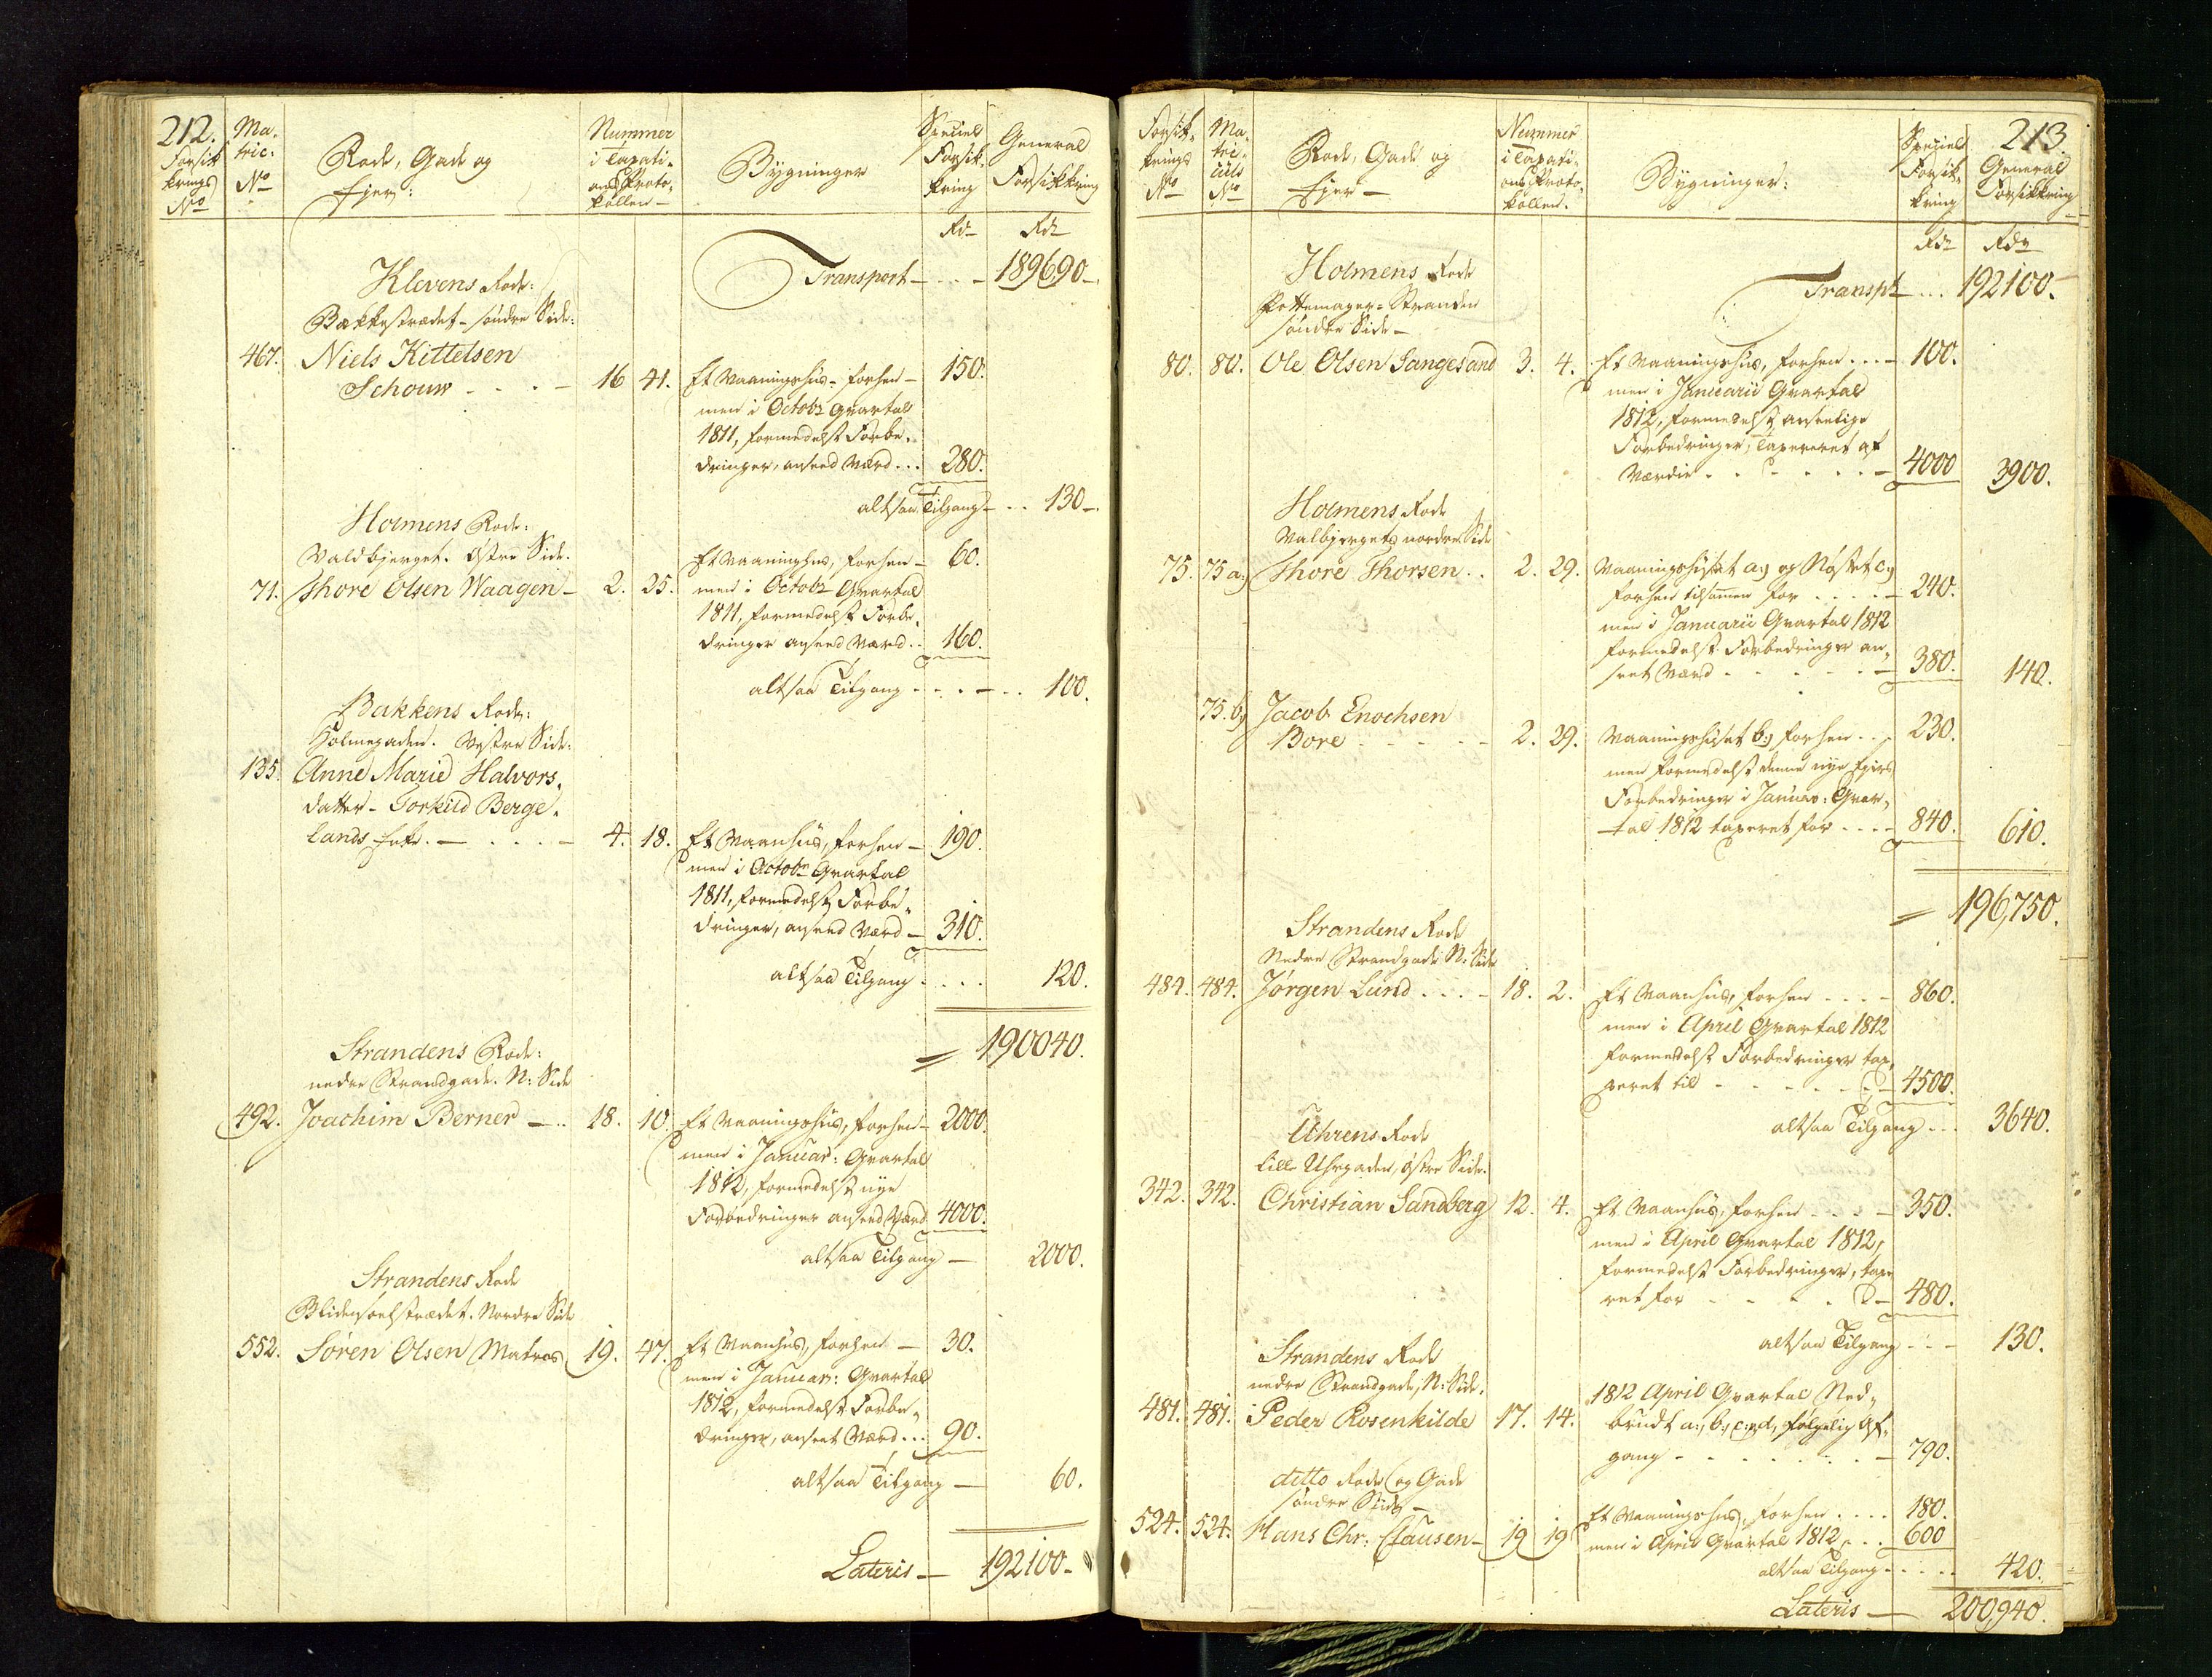 212.
Forsik
krings
No
Ma.
tric:
No
Rode, Gade og
Ejer:
Nummer
i Taxati-
ons Proto-
kollen -
Bygninger
Speciel
Forsik-
kring
General
Forsikkring
Rd
Rdr
Transport - 189690 -
Klevens Rode:
Bakkestrædet - søndre Side:
467. Niels Kittelsen
Schouw - 16 41. Et Vaaningshus - forhen - 150.
men i Octobr Qvartal
1811, formedelst Forbe-
dringer, anseed Værd ... 280.
altsaa Tilgang - 130 -
Holmens Rode:
Valdbjerget. Østre Side.
Et Vaaninghus, forhen - 60.
71. Thore Olsen Waagen - 2. 25. men i Octobr Qvartal
1811, formedelst Forbe-
dringer anseed Værd .. 160.
altsaa Tilgang - 100.
Bakkens Rode:
Holmegaden. Vestre Side:
135. Anne Marie Halvors-
datter - Torkild Berge-
lands Enke. - 4. 18. Et Vaanhus, forhen - 190.
men i Octobr Qvartal
1811, formedelst Forbe-
dringer, anseed Værd - 310.
altsaa Tilgang . . . . 120.
= 190040.
Strandens Rode:
nedre Strandgade. N: Side
492. Joachim Berner - .. 18. 10. Et Vaaningshus, forhen - 2000.
men i Januar: Qvartal
1812, formedelst nye
Forbedringer anseed Værd 4000.
altsaa Tilgang - 2000.
Strandens Rode
Blidensoelstrædet. Nordre Side
552. Søren Olsen Matros 19. 47. Et Vaanhus, forhen - 30.
men i Januar: Qvartal
1812, formedelst Forbe-
dringer, anseet Værd ... 90.
altsaa Tilgang - 60.
Lateris - 192100 -
213.
Forsik-
krings
No
Ma-
tric-
uls
No
Rode, Gade og
Ejer -
Nummer
i Taxati-
ons Proto-
kollen.
Bygninger:
Speciel
Forsik-
kring
General
Forsikkring
Rdr
Rdr
Transpt - ... 192100.
Holmens Rode
Pottemager - Stranden
søndre Side -
80. 80. Ole Olsen Gangesand 3. 4. Et Vaaningshus, forhen ... - 100.
men i Januarii Qvartal
1812, formedelst anseelige
Forbedringer, Taxereret af
Værdie - 4000 3900.
Holmens Rode
Valbjergets nordre Side
75. 75 a:) Thore Thorsen .. 2. 29. Vaaningshuset a:) og Nøstet c:)
forhen tilsammen for - 240.
men i Januarii Qvartal 1812
formedelst Forbedringer an-
seet Værd - 380. 140.
75. b:) Jacob Enochsen
Bore - 2. 29. Vaaningshuset b:) forhen ... 230.
men formedelst denne nye Ejers
Forbedringer i Januar: Qvar-
tal 1812 taxeret for .... 840. 610.
= 196,750.
Strandens Rode
Nedre Strandgade N: Side
484. 484. Jørgen Lund .... 18. 2. Et Vaanhus, forhen .... 860.
men i April Qvartal 1812
formedelst Forbedringer tax-
ereret til - 4500.
altsaa Tilgang ... 3640.
Uhrens Rode
Lille Uhrgaden, østre Side.
342. 342. Christian Sandberg 12. 4. Et Vaanhus, forhen .... 350.
men i April Qvartal 1812,
formedelst Forbedringer, taxe
ret for - 480.
altsaa Tilgang ... 130.
Strandens Rode
nedre Strandgade, N: Side.
481. 481. Peder Rosenkilde 17. 14. 1812 April Qvartal, Ned-
brudt a:, b:, c: og d, følgelig Af-
gang - 790.
ditto Rode og Gade
søndre Side -
524. 524. Hans Chr: Clausen - 19 19 Et Vaaningshus, forhen .... 180.
men i April Qvartal 1812, ... 600
altsaa Tilgang ..... 420.
Lateris - 200,940.